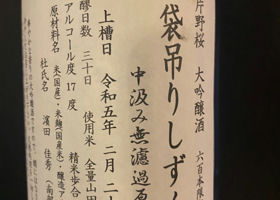 片野桜 大吟醸酒 六百本限
袋吊りしずく
中汲み無濾過原
上槽日 令和五年二月二十
醪日数 三十日 使用米 全量山田
アルコール度 17度 精米歩合
原材料名 米(国産)・米麹(国産米)・醸造ア
杜氏名 濱田 佳秀(南部